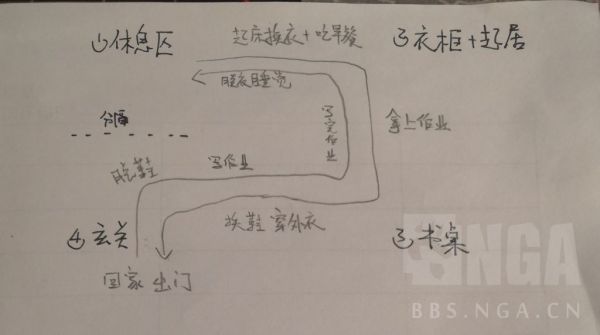 ①休息区
起床换衣+吃早餐
②衣柜+起居
脱衣睡觉
分隔
写完作业
拿上作业
脱鞋
写作业
④玄关
换鞋 穿外衣
③书桌
回家 出门
NGA
BBS.NGA.CN